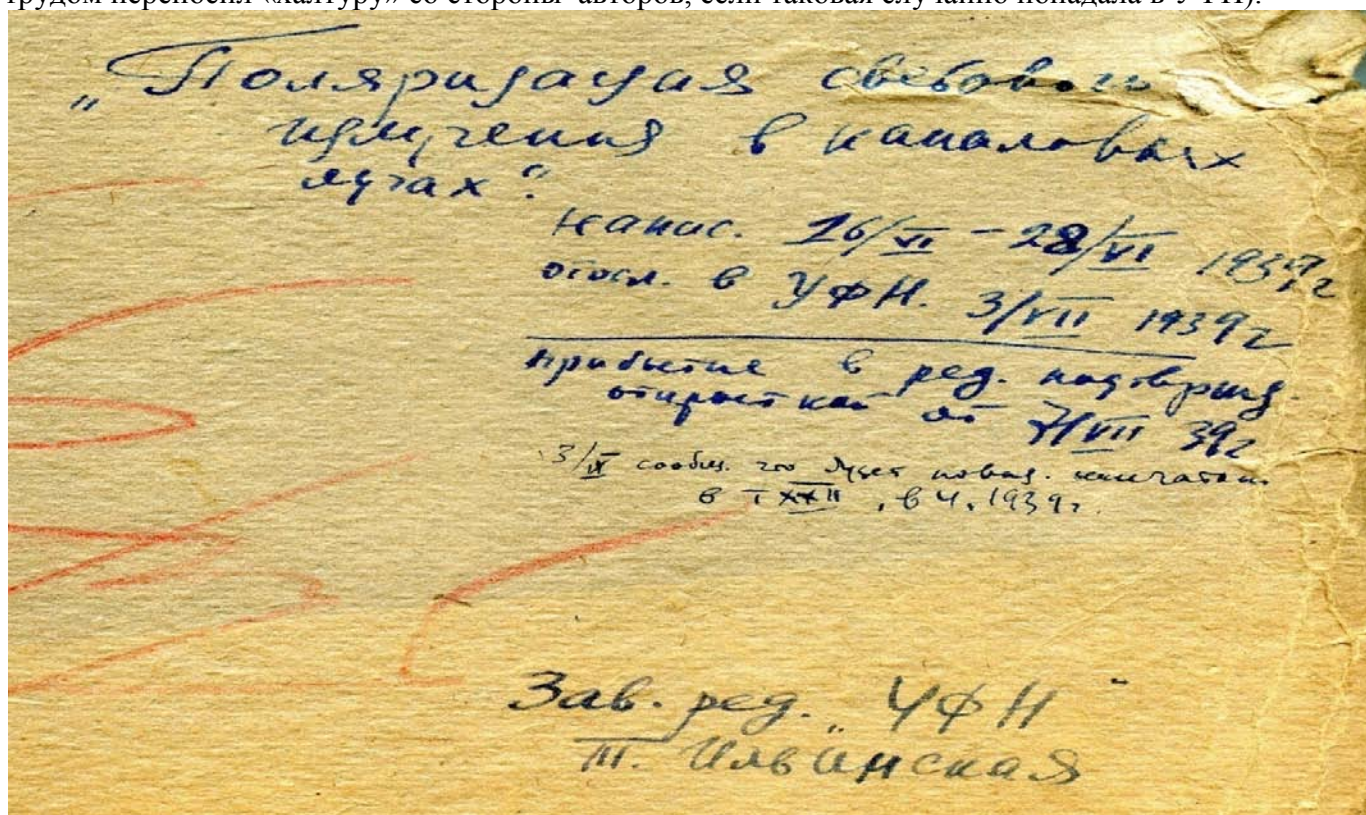 трудом переносил «халтуру» со стороны авторов, если таковая случайно попадала в УФН).
„Поляризация светового
излучения в каналовых
лучах“.
напис. 16/VI – 28/VI 1939 г
отосл. в УФН. 3/VII 1939 г
прибытие в ред. подтвержд.
открыткой от 7/VII 39 г
3/IX сообщ. что будет напечатан
в т XXII, в 4, 1939 г.
Зав. ред. „УФН“
т. Ильинская